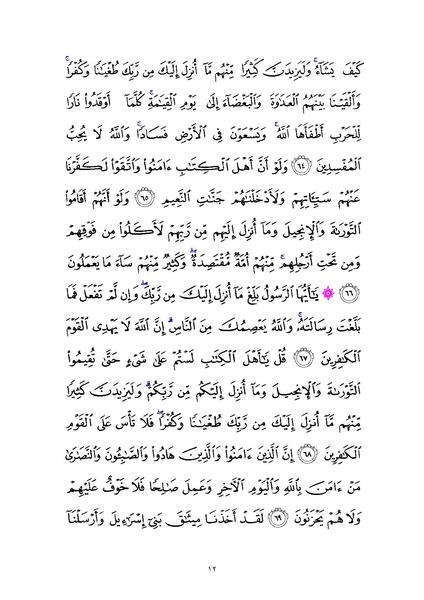 كَيۡفَ يَشَآءُۚ وَلَيَزِيدَنَّ كَثِيرٗا مِّنۡهُم مَّآ أُنزِلَ إِلَيۡكَ مِن رَّبِّكَ طُغۡيَٰنٗا وَكُفۡرٗاۚ
وَأَلۡقَيۡنَا بَيۡنَهُمُ ٱلۡعَدَٰوَةَ وَٱلۡبَغۡضَآءَ إِلَىٰ يَوۡمِ ٱلۡقِيَٰمَةِۚ كُلَّمَآ أَوۡقَدُواْ نَارٗا
لِّلۡحَرۡبِ أَطۡفَأَهَا ٱللَّهُۚ وَيَسۡعَوۡنَ فِي ٱلۡأَرۡضِ فَسَادٗاۚ وَٱللَّهُ لَا يُحِبُّ
ٱلۡمُفۡسِدِينَ ٦٤ وَلَوۡ أَنَّ أَهۡلَ ٱلۡكِتَٰبِ ءَامَنُواْ وَٱتَّقَوۡاْ لَكَفَّرۡنَا
عَنۡهُمۡ سَيِّـَٔاتِهِمۡ وَلَأَدۡخَلۡنَٰهُمۡ جَنَّٰتِ ٱلنَّعِيمِ ٦٥ وَلَوۡ أَنَّهُمۡ أَقَامُواْ
ٱلتَّوۡرَىٰةَ وَٱلۡإِنجِيلَ وَمَآ أُنزِلَ إِلَيۡهِم مِّن رَّبِّهِمۡ لَأَكَلُواْ مِن فَوۡقِهِمۡ
وَمِن تَحۡتِ أَرۡجُلِهِمۚ مِّنۡهُمۡ أُمَّةٞ مُّقۡتَصِدَةٞۖ وَكَثِيرٞ مِّنۡهُمۡ سَآءَ مَا يَعۡمَلُونَ
٦٦ ۞ يَٰٓأَيُّهَا ٱلرَّسُولُ بَلِّغۡ مَآ أُنزِلَ إِلَيۡكَ مِن رَّبِّكَۖ وَإِن لَّمۡ تَفۡعَلۡ فَمَا
بَلَّغۡتَ رِسَالَتَهُۥۚ وَٱللَّهُ يَعۡصِمُكَ مِنَ ٱلنَّاسِۗ إِنَّ ٱللَّهَ لَا يَهۡدِي ٱلۡقَوۡمَ
ٱلۡكَٰفِرِينَ ٦٧ قُلۡ يَٰٓأَهۡلَ ٱلۡكِتَٰبِ لَسۡتُمۡ عَلَىٰ شَيۡءٍ حَتَّىٰ تُقِيمُواْ
ٱلتَّوۡرَىٰةَ وَٱلۡإِنجِيلَ وَمَآ أُنزِلَ إِلَيۡكُم مِّن رَّبِّكُمۡۗ وَلَيَزِيدَنَّ كَثِيرٗا
مِّنۡهُم مَّآ أُنزِلَ إِلَيۡكَ مِن رَّبِّكَ طُغۡيَٰنٗا وَكُفۡرٗاۖ فَلَا تَأۡسَ عَلَى ٱلۡقَوۡمِ
ٱلۡكَٰفِرِينَ ٦٨ إِنَّ ٱلَّذِينَ ءَامَنُواْ وَٱلَّذِينَ هَادُواْ وَٱلصَّٰبِـُٔونَ وَٱلنَّصَٰرَىٰ
مَنۡ ءَامَنَ بِٱللَّهِ وَٱلۡيَوۡمِ ٱلۡأٓخِرِ وَعَمِلَ صَٰلِحٗا فَلَا خَوۡفٌ عَلَيۡهِمۡ
وَلَا هُمۡ يَحۡزَنُونَ ٦٩ لَقَدۡ أَخَذۡنَا مِيثَٰقَ بَنِيٓ إِسۡرَٰٓءِيلَ وَأَرۡسَلۡنَآ
١٢